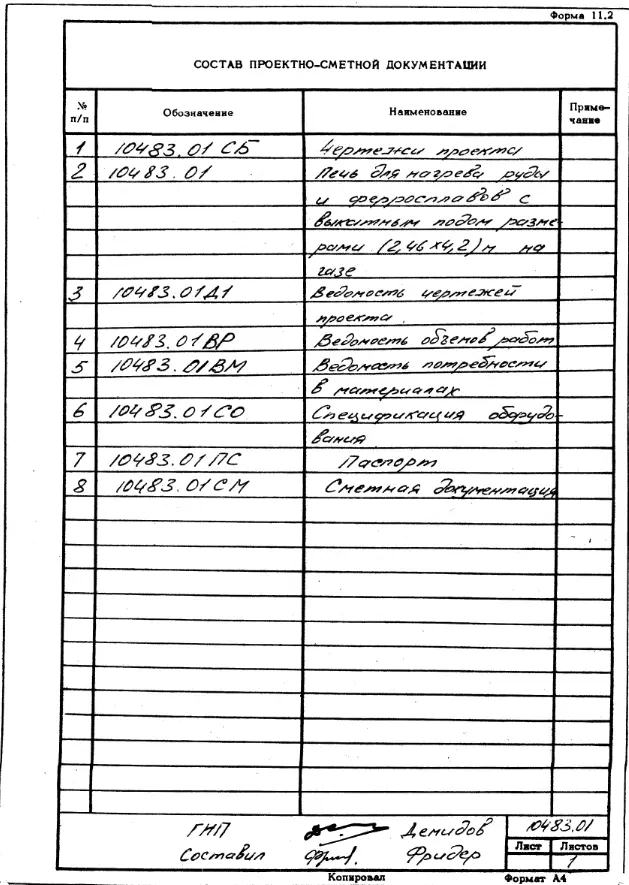 Форма 11.2
СОСТАВ ПРОЕКТНО-СМЕТНОЙ ДОКУМЕНТАЦИИ
№ п/п Обозначение Наименование Приме-
чание
1 10483.01 СБ Чертежи проекта
2 10483.01 Печь для нагрева руды
и ферросплавов с
выкатным подом разме-
рами (2,46×4,2)м на
газе
3 10483.01Д1 Ведомость чертежей
проекта.
4 10483.01ВР Ведомость объемов работ
5 10483.01ВМ Ведомость потребности
в материалах
6 10483.01СО Спецификация оборудо-
вания
7 10483.01ПС Паспорт
8 10483.01СМ Сметная документация
ГИП Демидов 10483.01
Лист Листов
Составил Фридер 1
Копировал Формат А4